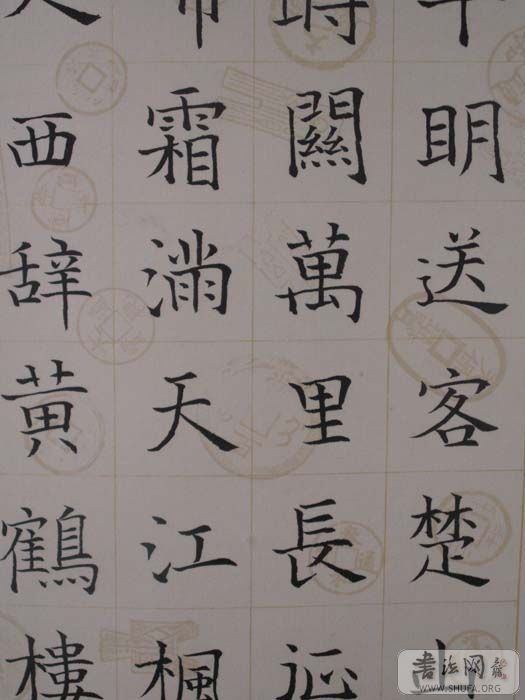 明送客楚
時關萬里長征
霜滿天江楓
人西辞黄鶴樓
書法网
WWW.SHUFA.ORG